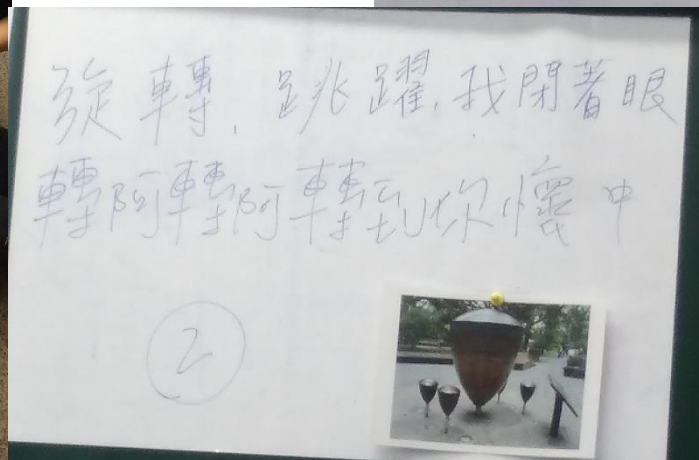 旋轉、跳躍,我閉著眼
轉阿轉阿轉到你懷中
2